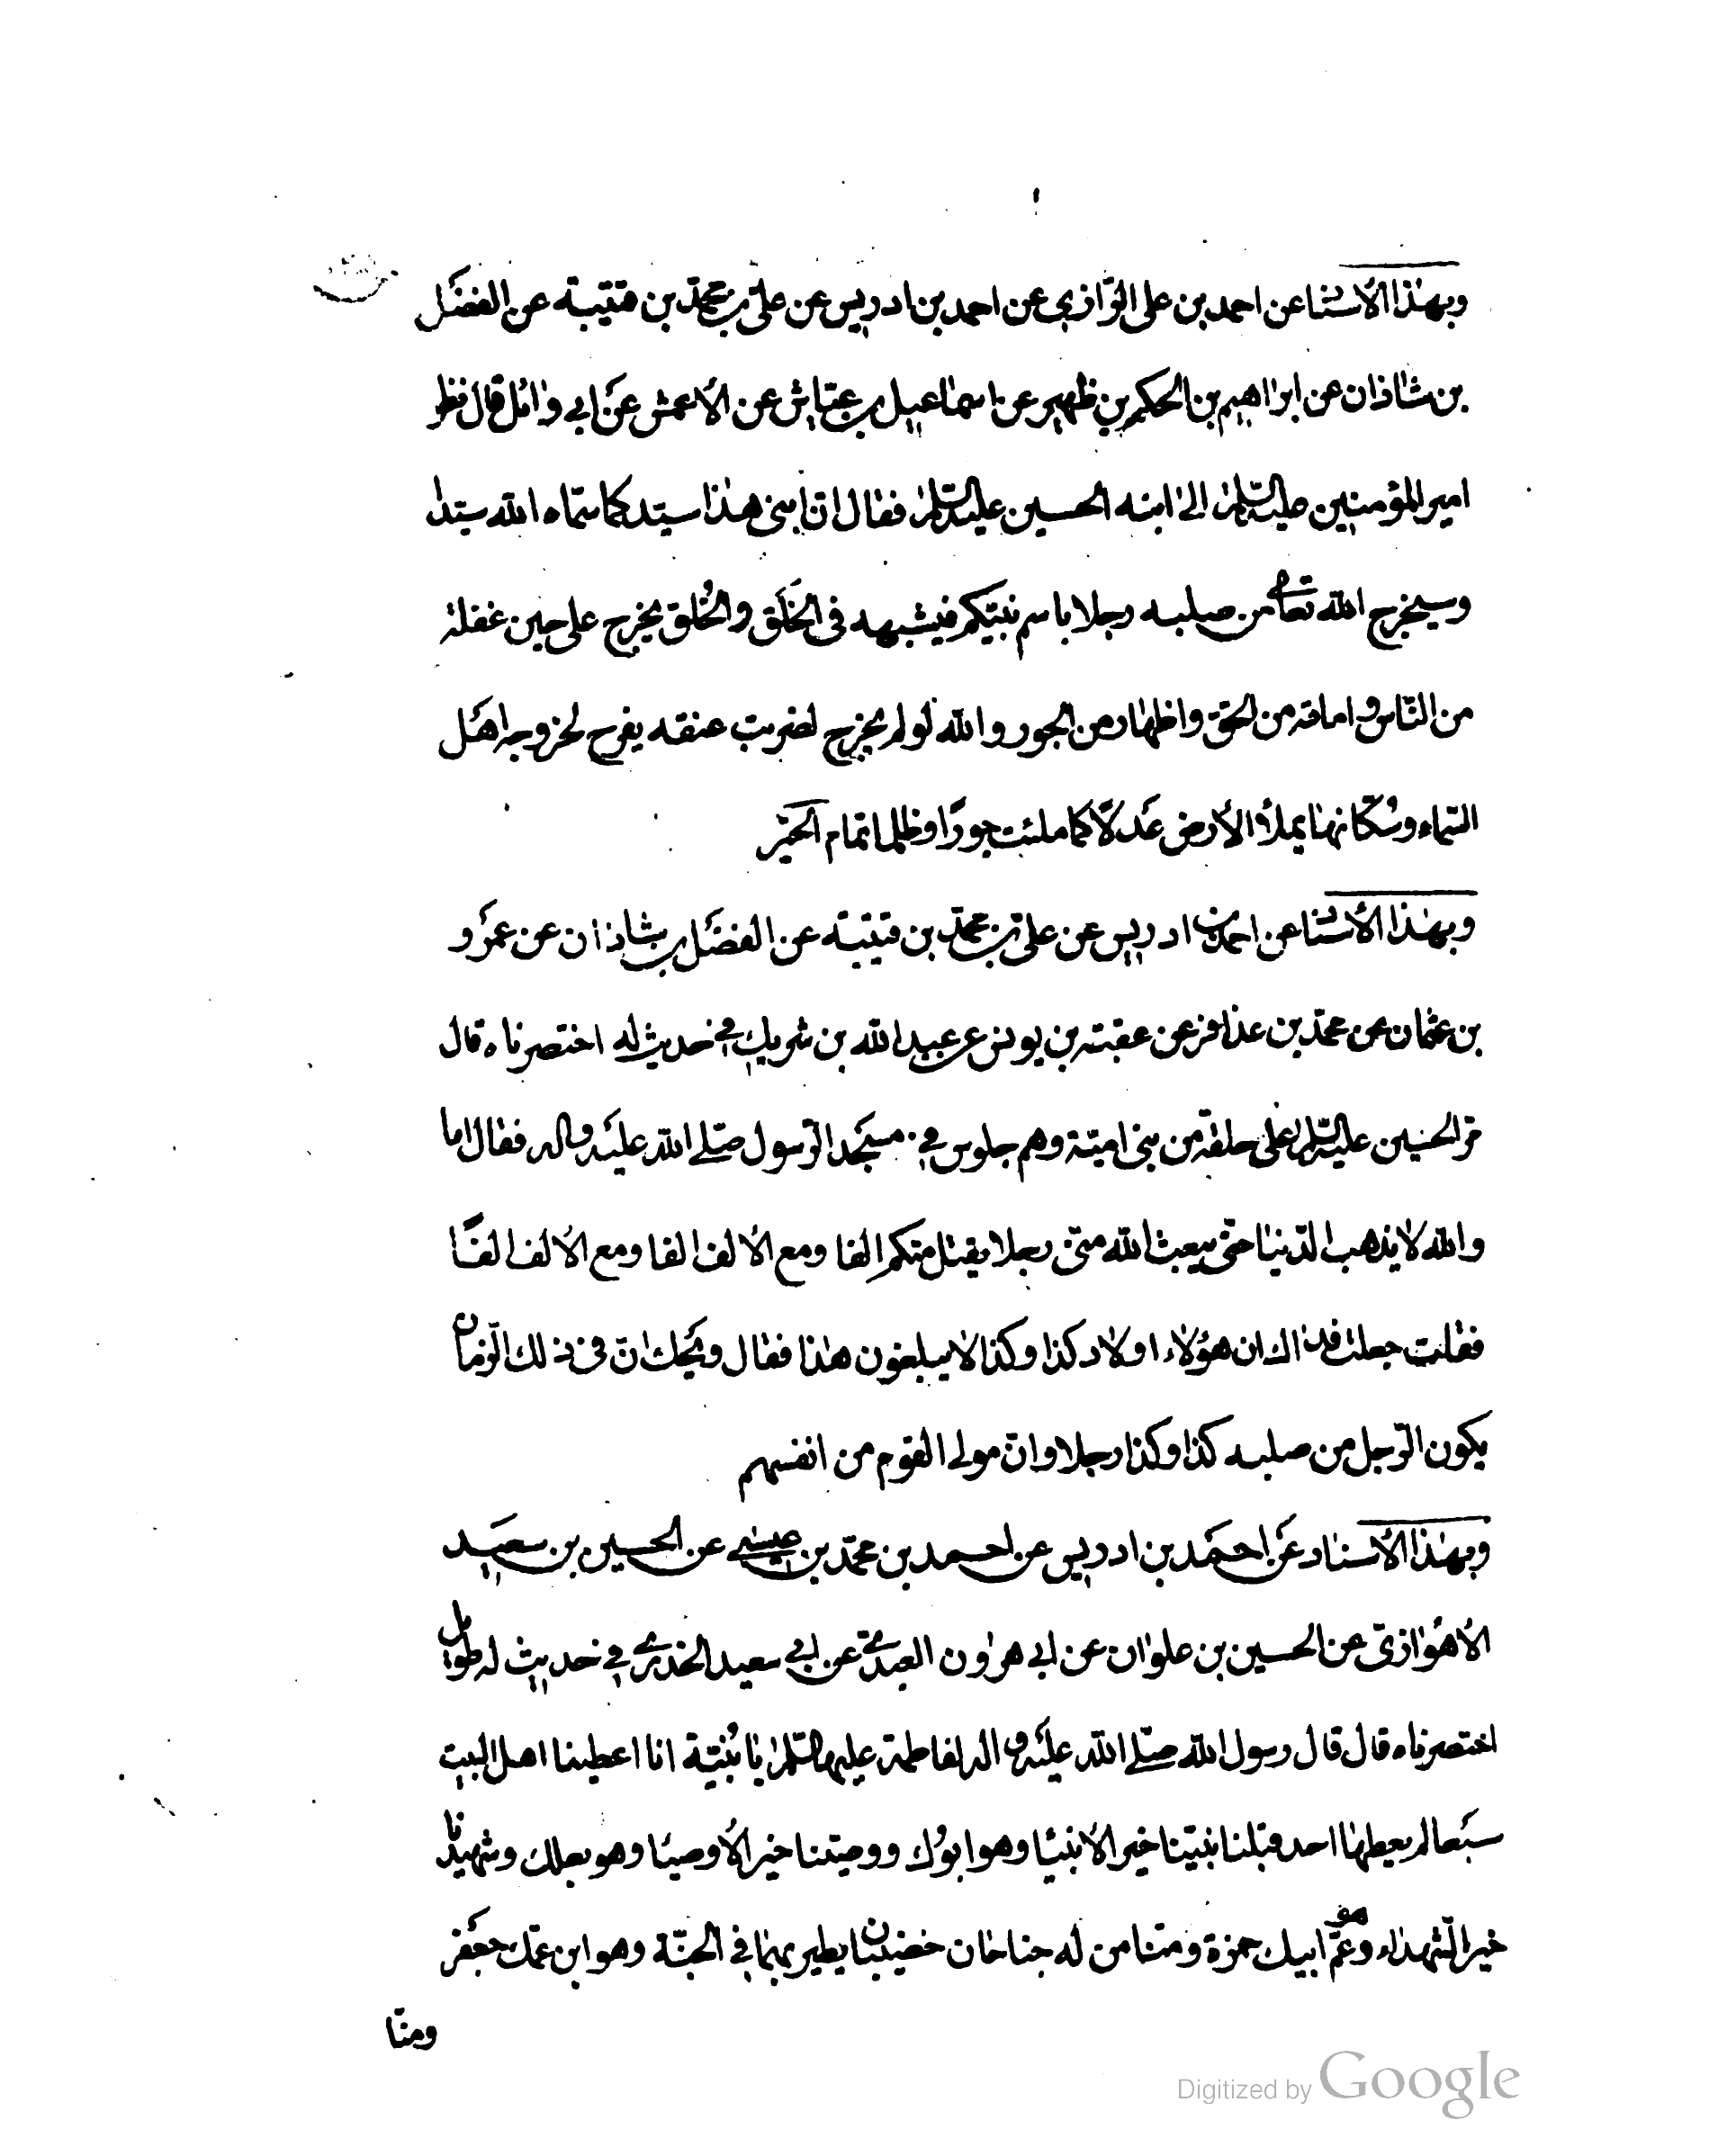 وبهذا الأسنا عن احمد بن على الرّازي عن احمد بن ادريس عن علىّ بن محمّد بن قتيبة عن الفضَل
بن شاذان عن ابراهيم بن الحكم بن ظهير عن اسماعيل بن عيّاش عن الأعمش عَن ابي وائل قال نظر
امير المؤمنين عليه السّلام الى ابنه الحسين عليه السّلام فقال انّ ابنى هذا سيّد كما سمّاه الله سيّدا
وسيخرج الله تعالى من صلبه رجلا باسم نبيّكم فيشبهه فى الخَلق والخُلق يخرج على حين غفلة
من النّاس واماتة من الحقّ واظهار من الجور والله لو لم يخرج لضربت عنقه يفرح لخروجه اهَل
السّماء وسُكّانها يملأ الأرض عَدلاً كما ملئت جورًا وظلما تمام الخبر
وبهذا الأسنا عن احمد بن ادريس عن علىّ بن محمّد بن قتيبة عن الفضَل بن شاذان عن عمَرو
بن عثمان عن محمّد بن عذافر عن عقبة بن يونس عن عبد الله بن شريك في حديث له اختصرناه قال
مرّ الحسين عليه السّلام على حلقة من بنى اميّة وهم جلوس في مسَجد الرّسول صلّى الله عليَه واله فقال اما
والله لا يذهب الدّنيا حتّى يبعث الله منّى رجلا يقتل منكم الفا ومع الألف الفا ومع الألف الفًا
فقلت جعلت فداك ان هؤلاء اولاد كذا وكذا لا يبلغون هذا فقال ويَحك انّ فى ذلك الزّمان
يكون الرّجل من صلبه كذا وكذا رجلا وانّ مولى القوم من انفسهم
وبهذا الأسناد عَن احمَد بن ادريس عن احمد بن محمّد بن عيسى عن الحسين بن سعَيد
الأهوازىّ عن الحسين بن علوان عن ابي هرون العبدىّ عن ابي سعيد الخدرىّ في حديث له طويل
اختصرناه قال قال رسول الله صلّى الله عليَه واله لفاطمة عليها السّلام يا بُنيّة انا اعطينا اهل البيت
سبَعا لم يعطها احد قبلنا نبيّنا خير الأنبيَا وهو ابوُك ووصيّنا خير الأوصيَا وهو بعلك وشهيدنا
خير الشّهداء وهو عمّ ابيك حمزة ومنّا من له جناحان خضيبان يطير بهما في الجنّة وهو ابن عمّك جعَفر
ومنّا
Digitized by Google